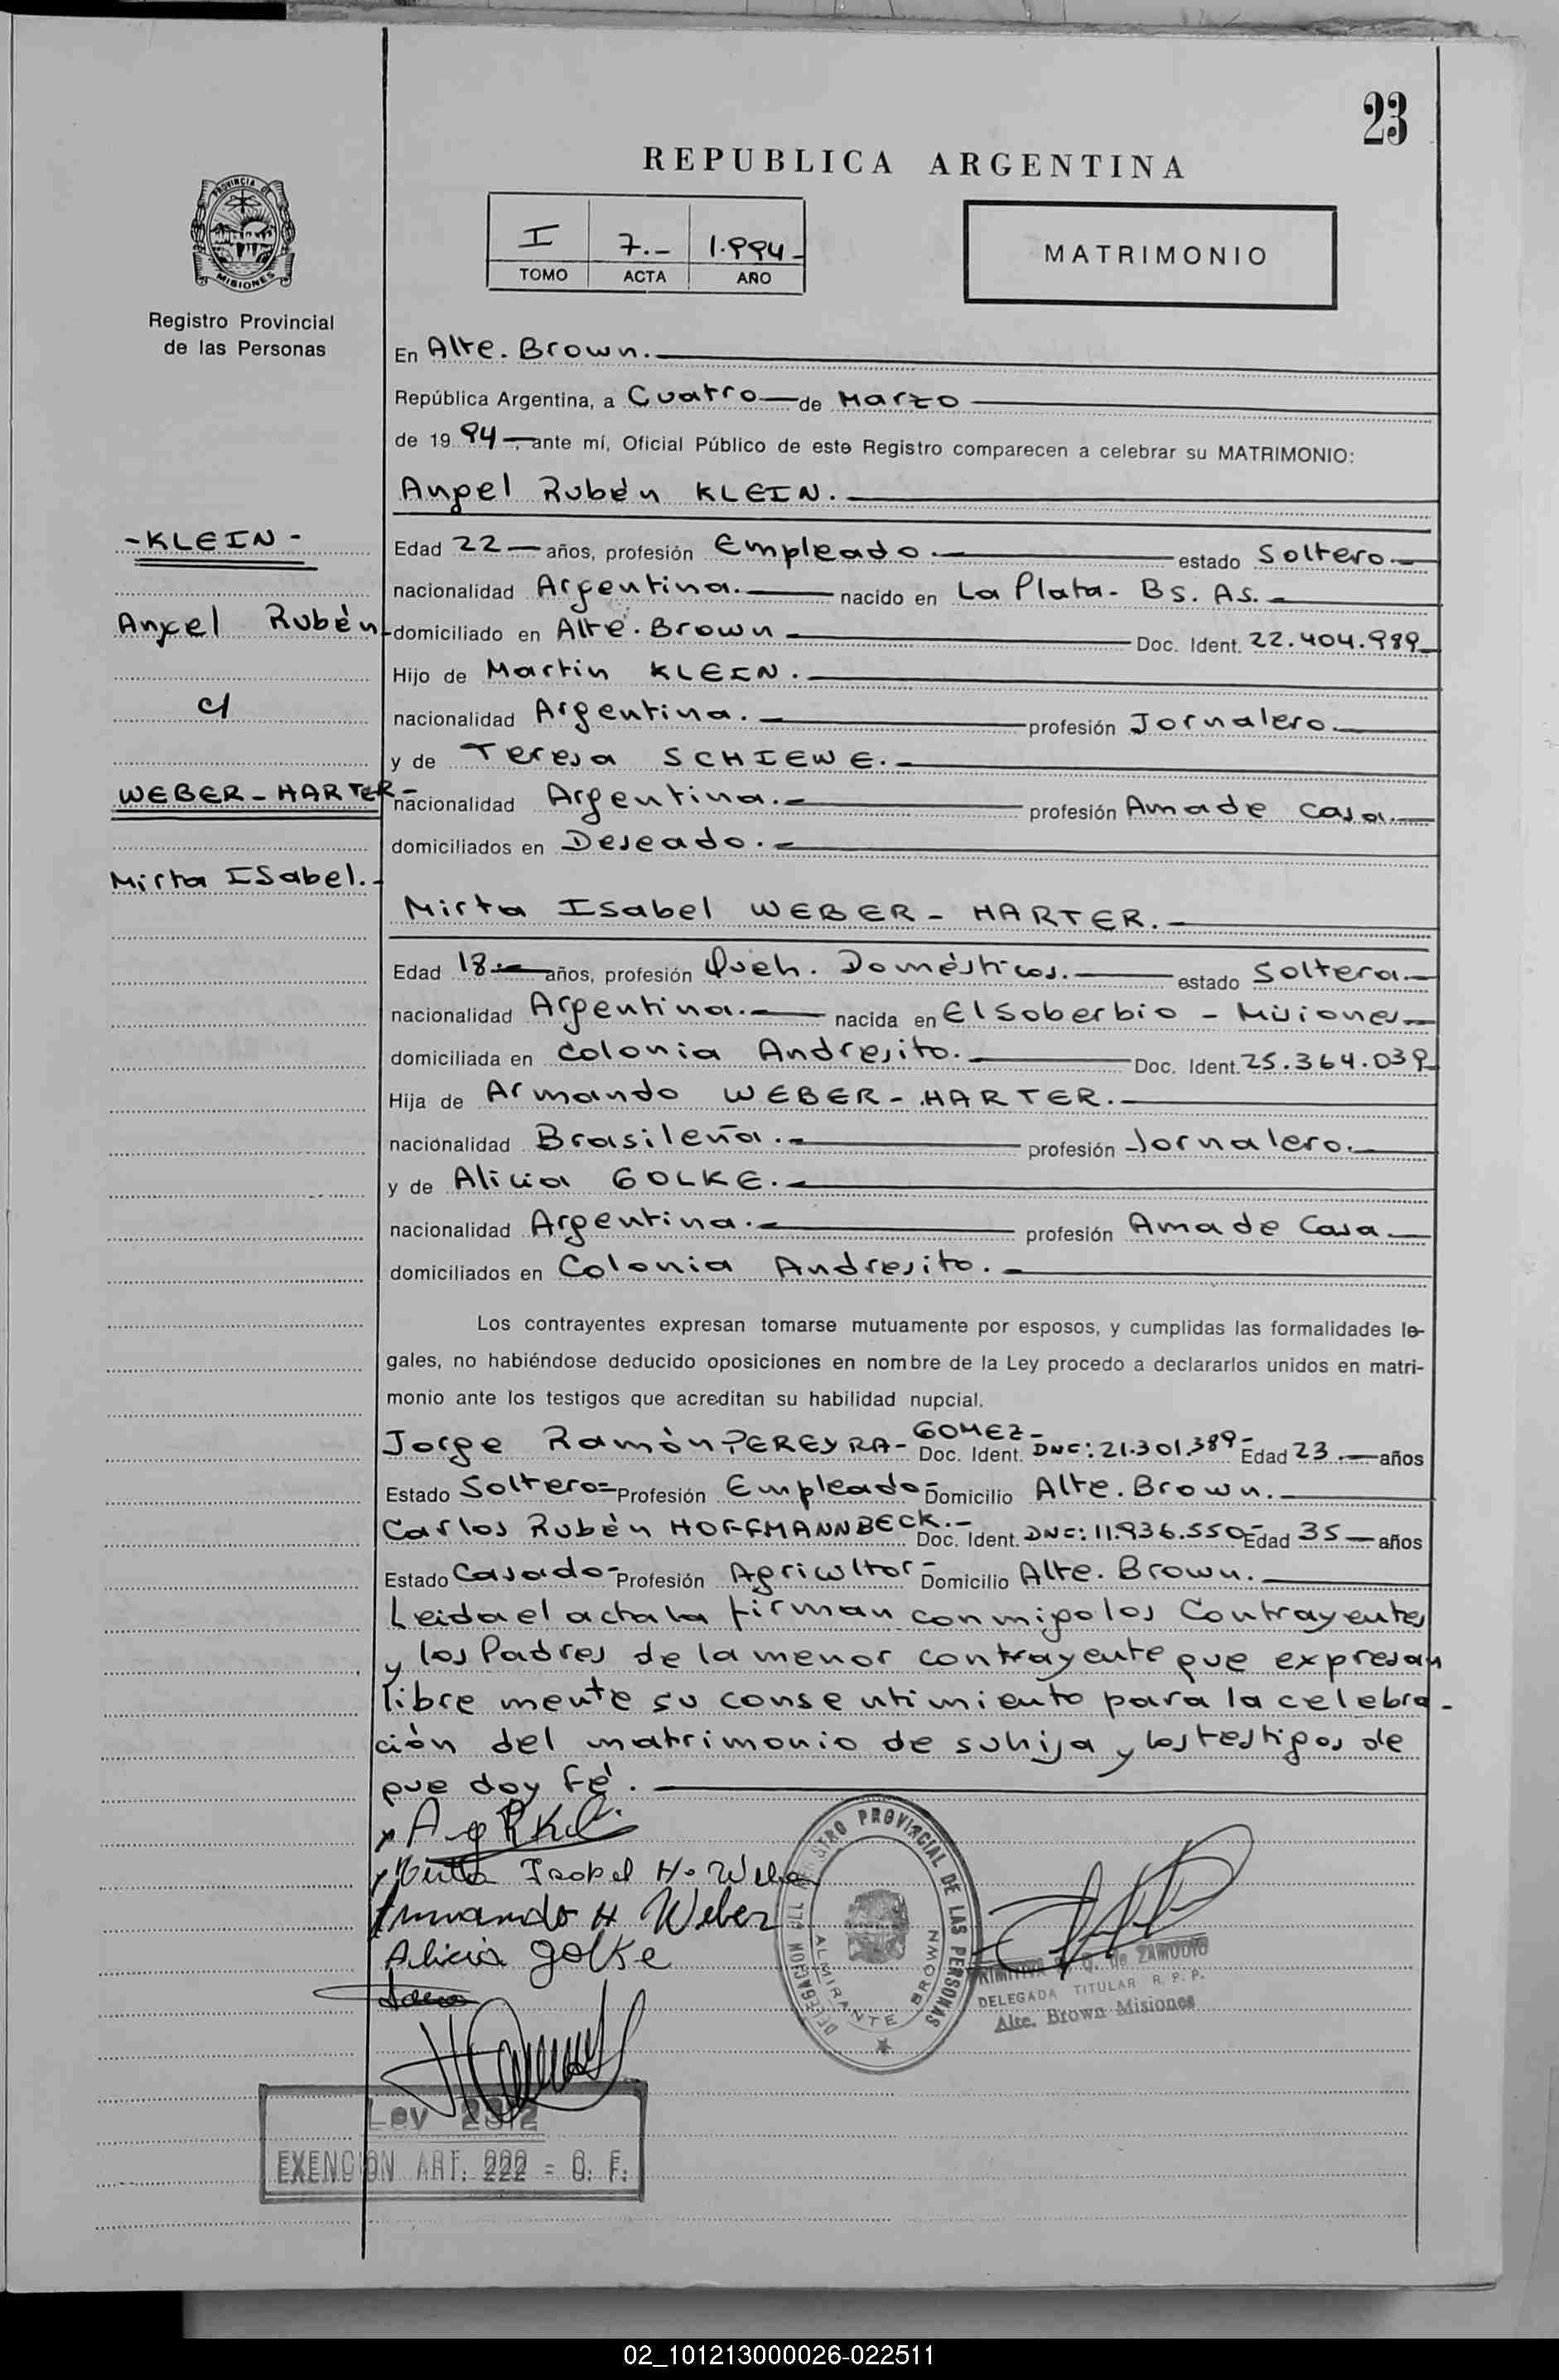 23
REPUBLICA ARGENTINA
PROVINCIA DE
MISIONES
Registro Provincial
de las Personas
I 7.- 1.994-
TOMO ACTA AÑO
MATRIMONIO
En Alte. Brown.
República Argentina, a Cuatro de Marzo
de 1994, ante mí, Oficial Público de este Registro comparecen a celebrar su MATRIMONIO:
Angel Rubén KLEIN.
-KLEIN-
Angel Rubén
c/
WEBER-HARTER-
Mirta ISabel.-
Edad 22 años, profesión Empleado. estado Soltero.
nacionalidad Argentina. nacido en La Plata- Bs. As.
domiciliado en Alte. Brown Doc. Ident. 22.404.989
Hijo de Martin KLEIN.
nacionalidad Argentina. profesión Jornalero.
y de Teresa SCHIEWE.
nacionalidad Argentina. profesión Ama de casa.
domiciliados en Deseado.
Mirta ISabel WEBER- HARTER.
Edad 18.- años, profesión Queh. Domésticos. estado Soltera
nacionalidad Argentina. nacida en El Soberbio - Misiones
domiciliada en Colonia Andresito. Doc. Ident. 25.364.039
Hija de Armando WEBER-HARTER.
nacionalidad Brasileña. profesión Jornalero.
y de Alicia GOLKE.
nacionalidad Argentina. profesión Ama de Casa
domiciliados en Colonia Andresito.
Los contrayentes expresan tomarse mutuamente por esposos, y cumplidas las formalidades le-
gales, no habiéndose deducido oposiciones en nombre de la Ley procedo a declararlos unidos en matri-
monio ante los testigos que acreditan su habilidad nupcial.
Jorge Ramón PEREYRA- GOMEZ- Doc. Ident. DNI: 21.301.389- Edad 23.- años
Estado Soltero- Profesión Empleado- Domicilio Alte. Brown.
Carlos Rubén HOFFMANNBECK.- Doc. Ident. DNI: 11.936.550- Edad 35 años
Estado Casado- Profesión Agricultor- Domicilio Alte. Brown.
Leida el acta la firman conmigo los Contrayentes
y los Padres de la menor contrayente que expresan
libre mente su consentimiento para la celebra-
ción del matrimonio de su hija y los testigos de
que doy fé.
Mirta Isabel H. Weber
Armando H Weber
Alicia golke
DELEGACION REGISTRO PROVINCIAL DE LAS PERSONAS
ALMIRANTE BROWN
de ZAMUDIO
DELEGADA TITULAR R. P. P.
Alte. Brown Misiones
Ley 2312
EXENCION ART. 222 = C. F.
02_101213000026-022511